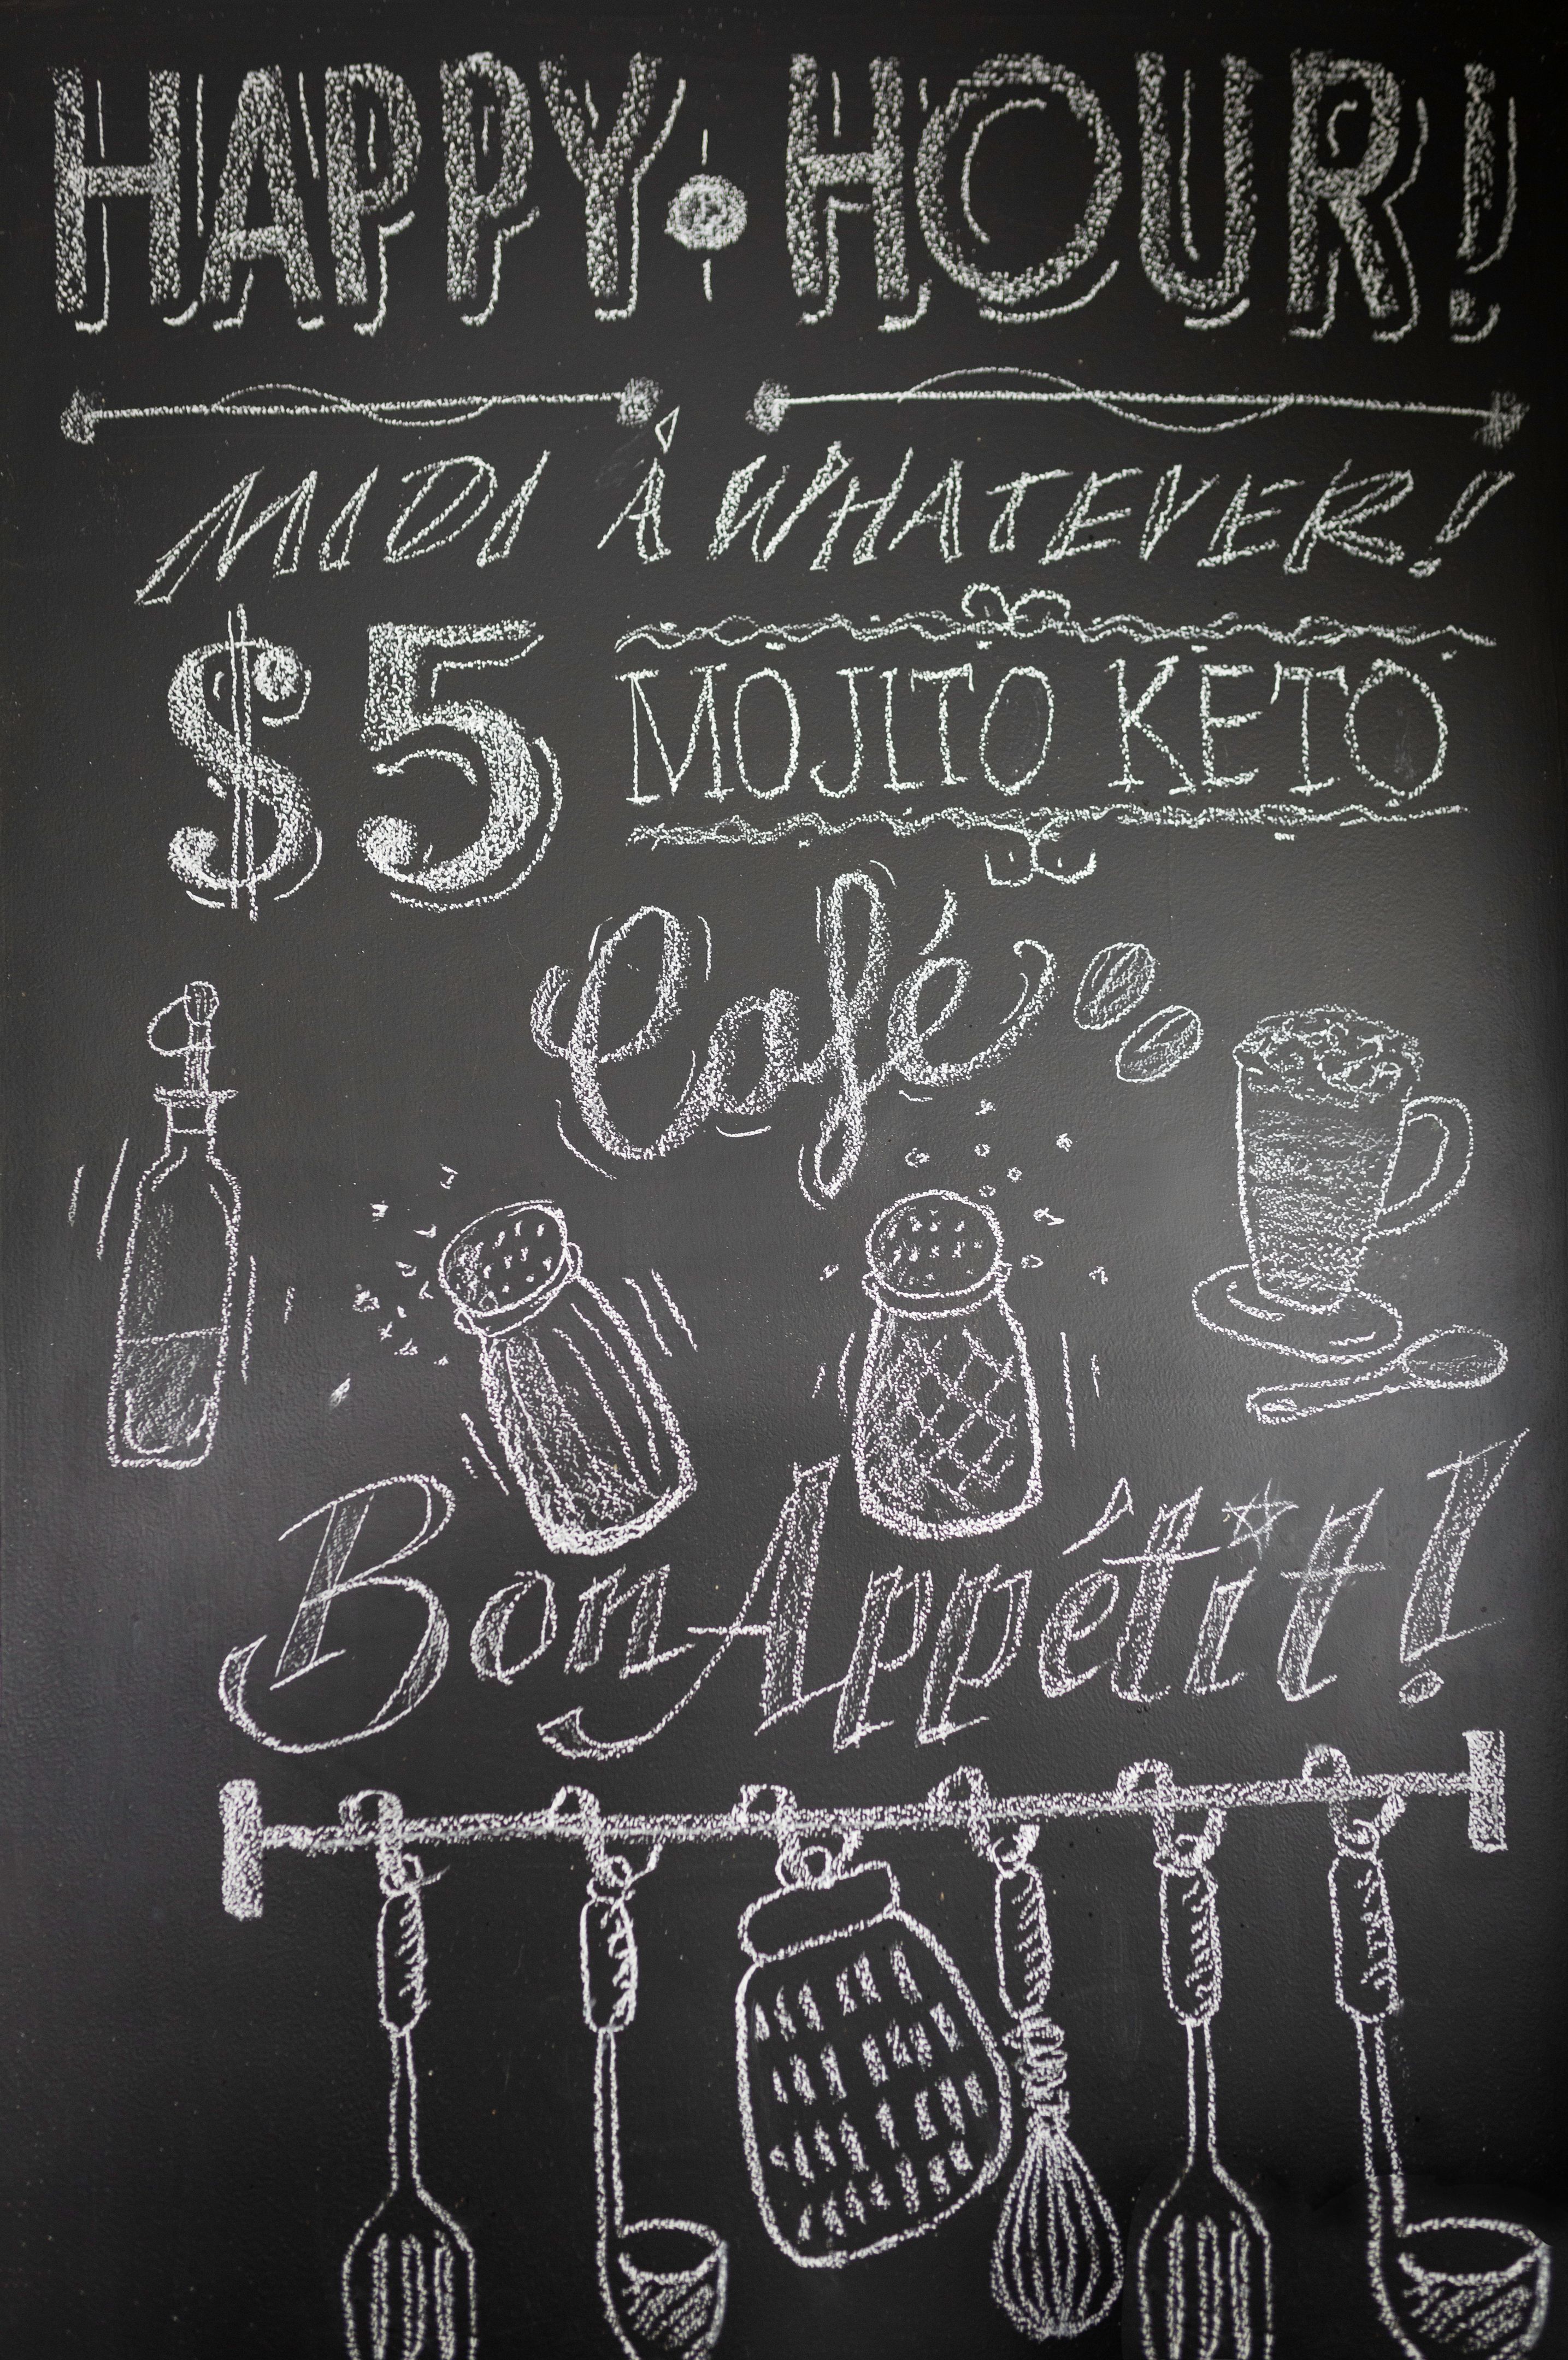 HAPPY • HOUR!
MIDI À WHATEVER!
$5 MOJITO KETO
Café
Bon Appétit!